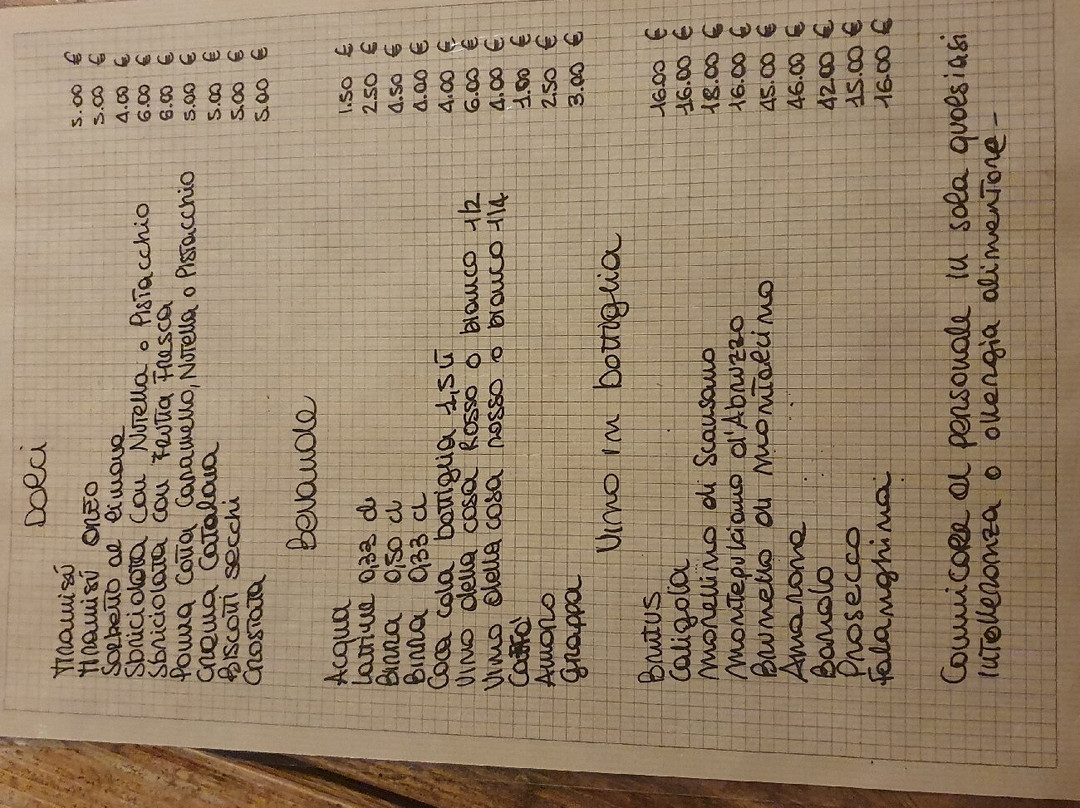 Dolci
Tiramisú 5.00 €
Tiramisú orzo 5.00 €
Sorbetto al limone 4.00 €
Sbriciolata con Nutella o Pistacchio 6.00 €
Sbriciolata con Frutta Fresca 6.00 €
Panna Cotta Caramello, Nutella o Pistacchio 5.00 €
Crema Catalana 5.00 €
Biscotti secchi 5.00 €
Crostata 5.00 €
Bevande
Acqua 1.50 €
Lattine 0,33 cl 2.50 €
Birra 0,50 cl 4.50 €
Birra 0,33 cl 4.00 €
Coca cola bottiglia 1,5 lt 4.00 €
Vino della casa Rosso o bianco 1/2 6.00 €
Vino della casa rosso o bianco 1/4 4.00 €
Caffé 1.00 €
Amaro 2.50 €
Grappa 3.00 €
Vino in bottiglia
Brutus 16.00 €
Caligola 16.00 €
Morellino di Scansano 18.00 €
Montepulciano d'Abruzzo 16.00 €
Brunello di Montalcino 45.00 €
Amarone 46.00 €
Barolo 42.00 €
Prosecco 15.00 €
Falanghina 16.00 €
Comunicare al personale in sala qualsiasi
intolleranza o allergia alimentare-